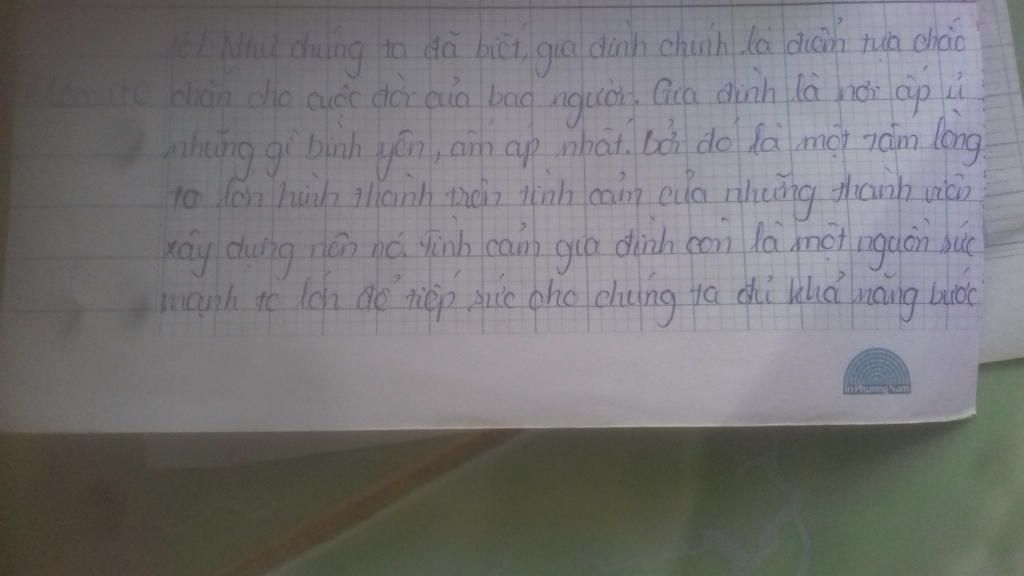 Như chúng ta đã biết, gia đình chính là điểm tựa chắc
chắn cho cuộc đời của bao người. Gia đình là nơi ấp ủ
những gì bình yên, ấm áp nhất. bởi đó là một tấm lòng
to lớn hình thành trên tình cảm của những thành viên
xây dựng nên nó. Tình cảm gia đình còn là một nguồn sức
mạnh to lớn để tiếp sức cho chúng ta đủ khả năng bước
In Phương Nam